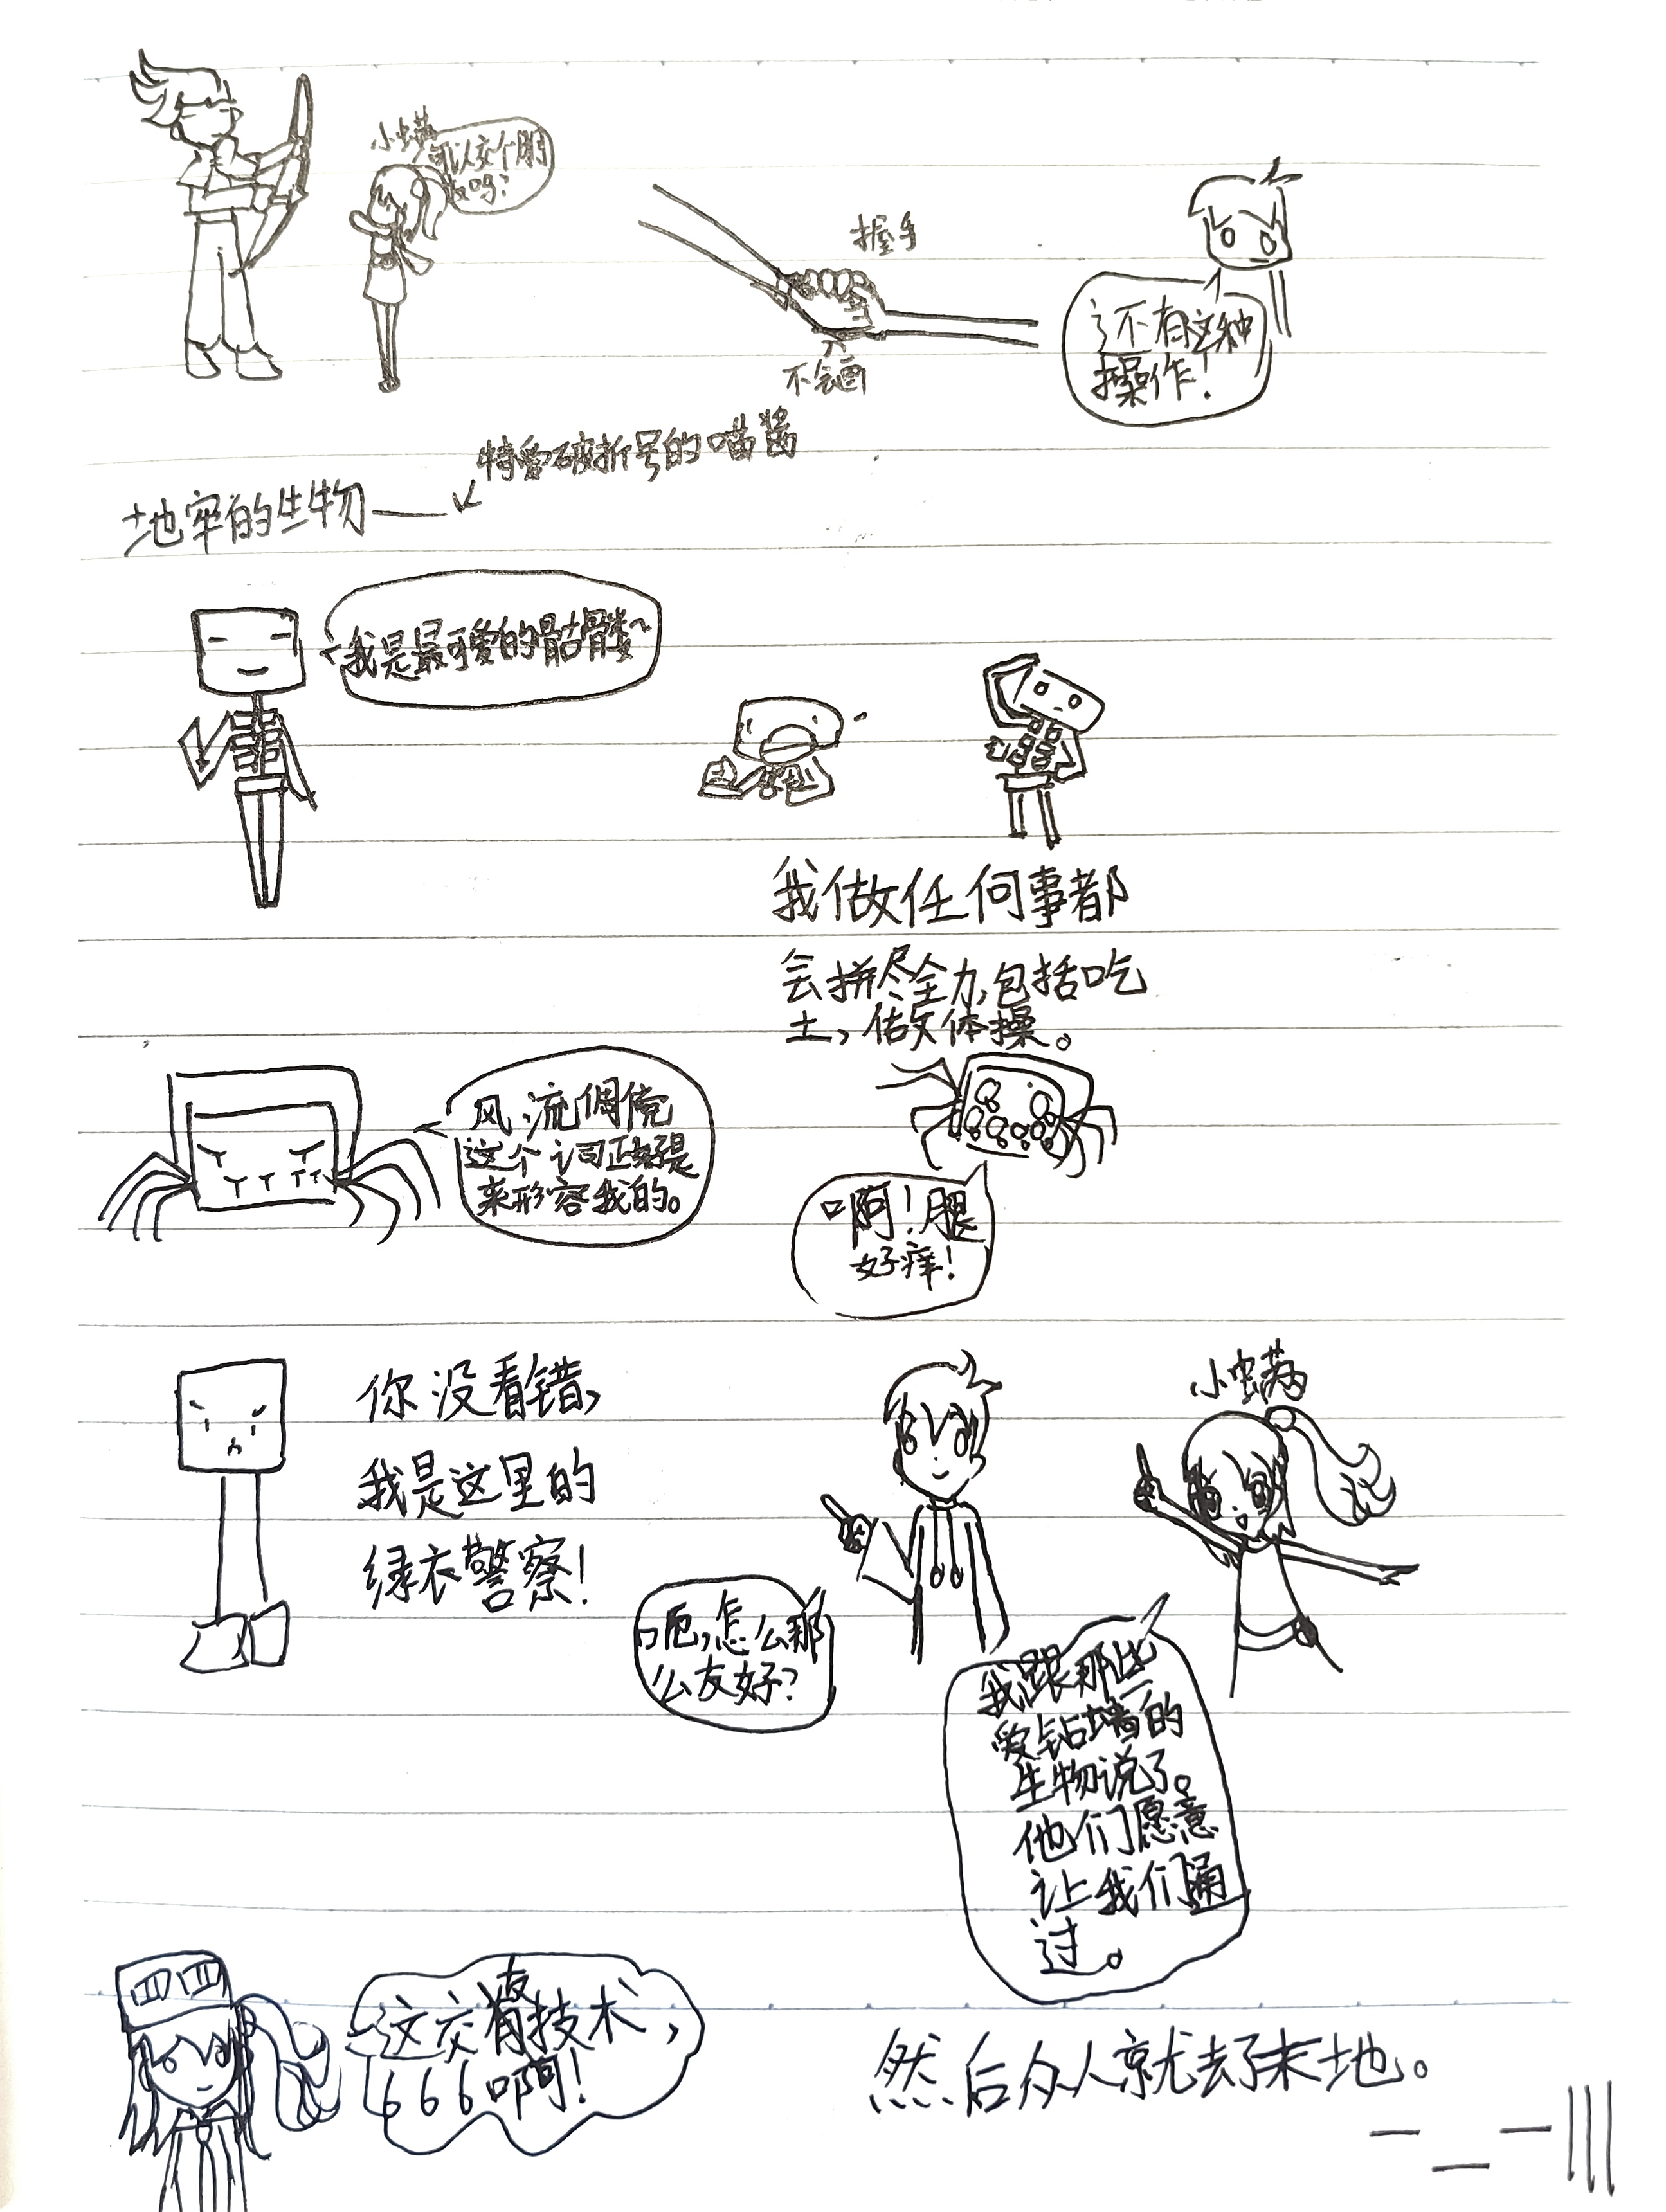 小螨
可以交个朋
友吗？
握手
不会画
还有这种
操作！
特爱破折号的喵酱
地牢的生物——
我是最可爱的骷髅~
我做任何事都
会拼尽全力,包括吃
土,做体操。
风流倜傥
这个词正好是
来形容我的。
啊！腿
好痒！
你没看错,
我是这里的
绿衣警察！
小螨
呃,怎么那
么友好？
我跟那些
爱钻墙的
生物说了。
他们愿意
让我们通
过。
这交友技术,
666啊！
然后众人就去了末地。